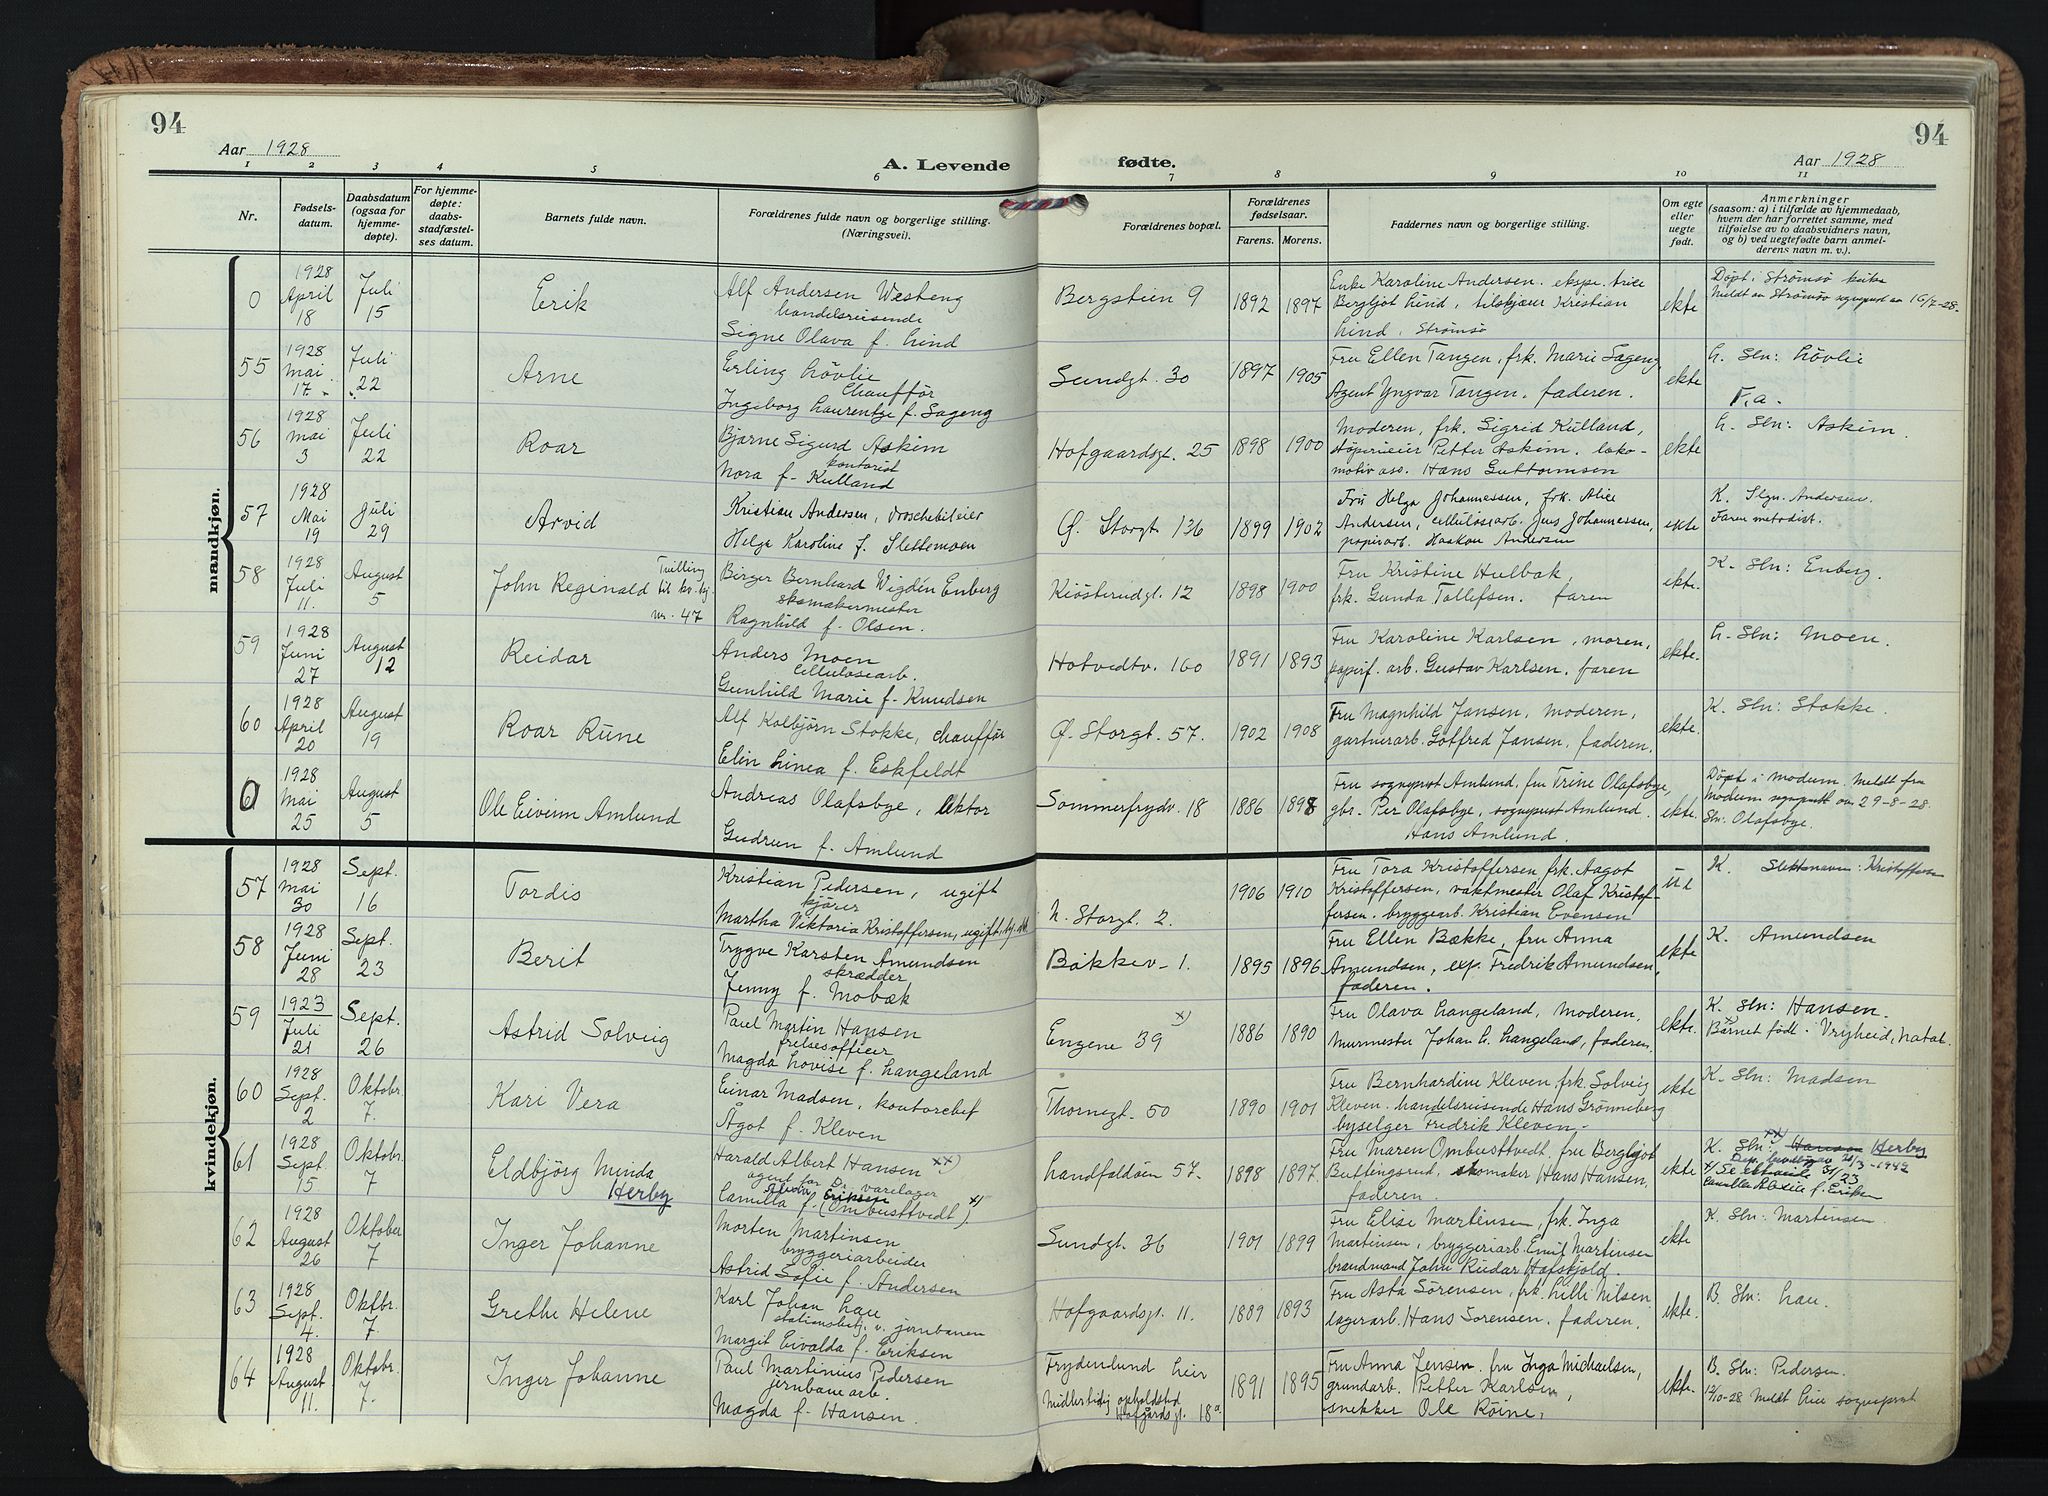 94
94
Aar 1928
A. Levende
fødte.
Aar 1928
1 2 3 4 5 6 7 8 9 10 11
Nr.
Fødsels-
datum.
Daabsdatum
(ogsaa for
hjemme-
døpte).
For hjemme-
døpte:
daabs-
stadfæstel-
ses datum.
Barnets fulde navn.
Forældrenes fulde navn og borgerlige stilling.
(Næringsvei).
Forældrenes bopæl.
Forældrenes
fødselsaar.
Farens. Morens.
Faddernes navn og borgerlige stilling.
Om egte
eller
uegte
født.
Anmerkninger
(saasom: a) i tilfælde av hjemmedaab,
hvem der har forrettet samme, med
tilføielse av to daabsvidners navn,
og b) ved uegtefødte barn anmel-
derens navn m. v.).
mandkjøn.
0
1928
April
18
Juli
15
Erik
Alf Andersen Westeng
handelsreisende
Signe Olava f. Lind
Bergstien 9
1892
1897
Enke Karoline Andersen. eksp.
Bergljot Lind, Kristian
Lind. Strømsø
ekte
Døpt i Strømsø kirke
Meldt av Strømsø sogneprest 16/7-28.
55
1928
Mai
17
Juli
22
Arne
Erling Løvlie
Chauffør
Ingeborg Laurentze f. Sageng
Sundgt. 30
1897
1905
Fru Ellen Tangen, frk. Marie Sageng,
Agent Yngvar Tangen. faderen.
ekte
L. Sln: Løvlie
F.a.
56
1928
Mai
3
Juli
22
Roar
Bjarne Sigurd Askim
kontorist
Nora f. Kulland
Hofgaardsgt. 25
1898
1900
Moderen, frk. Sigrid Kulland,
støperieier Petter Askim. loko-
motiv ass. Hans Guttormsen
ekte
L. Sln: Askim.
57
1928
Mai
19
Juli
29
Arvid
Kristian Andersen, droschebileier
Helga Karoline f. Slettemoen
Ø. Storgt 136
1899
1902
Fru Helga Johannessen, frk. Alice
Andersen, cellulosearb. Jens Johannessen,
papirarb. Haakon Andersen
ekte
K. Slgn. Andersen.
Faren metodist.
58
1928
Juli
11.
August
5
John Reginald
Tvilling
til kv. kj.
nr. 47
Birger Bernhard Wigdén Enberg
skomakermester
Ragnhild f. Olsen.
Kiøsterudgt. 12
1898
1900
Fru Kristine Hulbak,
frk. Gunda Tollefsen. faren
ekte.
K. Sln: Enberg.
59
1928
Juni
27
August
12
Reidar
Anders Moen
Cellulosearb.
Gunhild Marie f. Knudsen
Hotvedtv. 160
1891
1893
Fru Karoline Karlsen, moren,
papirf. arb. Gustav Karlsen. faren
ekte.
L. Sln: Moen.
60
1928
April
20
August
19
Roar Rune
Alf Kolbjørn Stokke, chauffør
Elin Linea f. Eskfeldt
Ø. Storgt. 57.
1902
1908
Fru Magnhild Jansen, moderen,
gartnerarb. Gotfred Jansen, faderen.
ekte.
K. Sln: Stokke.
1928
Mai
25
August
5
Ole Eivinn Amlund
Andreas Olafsbye, lektor
Gudrun f. Amlund
Sommerfrydv. 18
1886
1898
Fru sogneprest Amlund, fru Trine Olafsbye,
gbr. Per Olafsbye, sogneprest Amlund.
Hans Amlund.
ekte.
Døpt i Modum. Meldt fra
Modum sogneprest 29-8-28.
Sln: Olafsbye.
kvindekjøn.
57
1928
Mai
30
Sept.
16
Tordis
Kristian Pedersen, ugift
kjører
Martha Viktoria Kristoffersen, ugift,
N. Storgt. 2.
1906
1910
Fru Tora Kristoffersen, frk. Aagot
Kristoffersen, vaktmester Olaf Kristof-
fersen. bryggearb. Kristian Evensen
K. Slektsnavn: Kristoffersen
58
1928
Juni
28
Sept.
23
Berit
Trygve Karsten Amundsen
skrædder
Jenny f. Mobæk
Bakkev. 1.
1895
1896
Fru Ellen Bække, fru Anna
Amundsen, exp. Fredrik Amundsen,
faderen.
ekte
K. Amundsen
59
1923
Juli
21
Sept.
26
Astrid Solveig
Paul Martin Hansen
frelsesofficer
Magda Lovise f. Langeland
Engene 39 x)
1886
1890
Fru Olava Langeland, moderen,
murmester Johan L. Langeland, faderen.
ekte.
K. Sln: Hansen.
x) Barnet født i Vrijheid, Natal.
60
1928
Sept.
2
Oktobr.
7.
Kari Vera
Einar Madsen, kontorchef
Ågot f. Kleven
Thornegt. 50
1890
1901
Fru Bernhardine Kleven, frk. Solveig
Kleven. handelsreisende Hans Grønneberg
byselger Fredrik Kleven.
ekte
K. Sln: Madsen
61
1928
Sept.
15
Oktobr.
7
Eldbjörg Minda
Herby
Harald Albert Hansen xx)
agent for Dr. varelager
Camilla Alvilde f. Eriksen (Ombusttvedt). x)
Landfaldøen 57.
1898
1897
Fru Maren Ombusttvedt. fru Bergljot
Buttingsrud, skomaker Hans Hansen,
faderen.
ekte
K. Sln: xx) Hansen Herby
62
1928
August
26
Oktober
7
Inger Johanne
Morten Martinsen
bryggeriarbeider
Astrid Sofie f. Andersen
Sundgt. 36
1901
1899
Fru Elise Martinsen, frk. Inga
Martinsen, bryggeriarb. Emil Martinsen
brandmand John Reidar Hafskjold.
ekte
K. Sln: Martinsen.
63
1928
Sept.
4.
Oktbr.
7.
Grethe Helene
Karl Johan Lau
stationsbetj. v. jernbanen
Margit Eivalda f. Eriksen
Hofgaardsgt. 11.
1889
1893
Fru Asta Sörensen, frk. Lilli Nilsen
lagerarb. Hans Sörensen. faderen.
ekte.
B. Sln: Lau.
64
1928
August
11.
Oktobr.
7.
Inger Johanne
Paul Martinius Pedersen
jernbanearb.
Magda f. Hansen.
Frydenlund Lier
Midlertidig opholdsted
Hofgårdsgt. 18a
1891
1895
Fru Anna Jensen. fru Inga Michaelsen,
grundarb. Petter Karlsen,
snekker Ole Röine.
ekte.
B. Sln: Pedersen.
12/10-28 Meldt Lier sogneprest